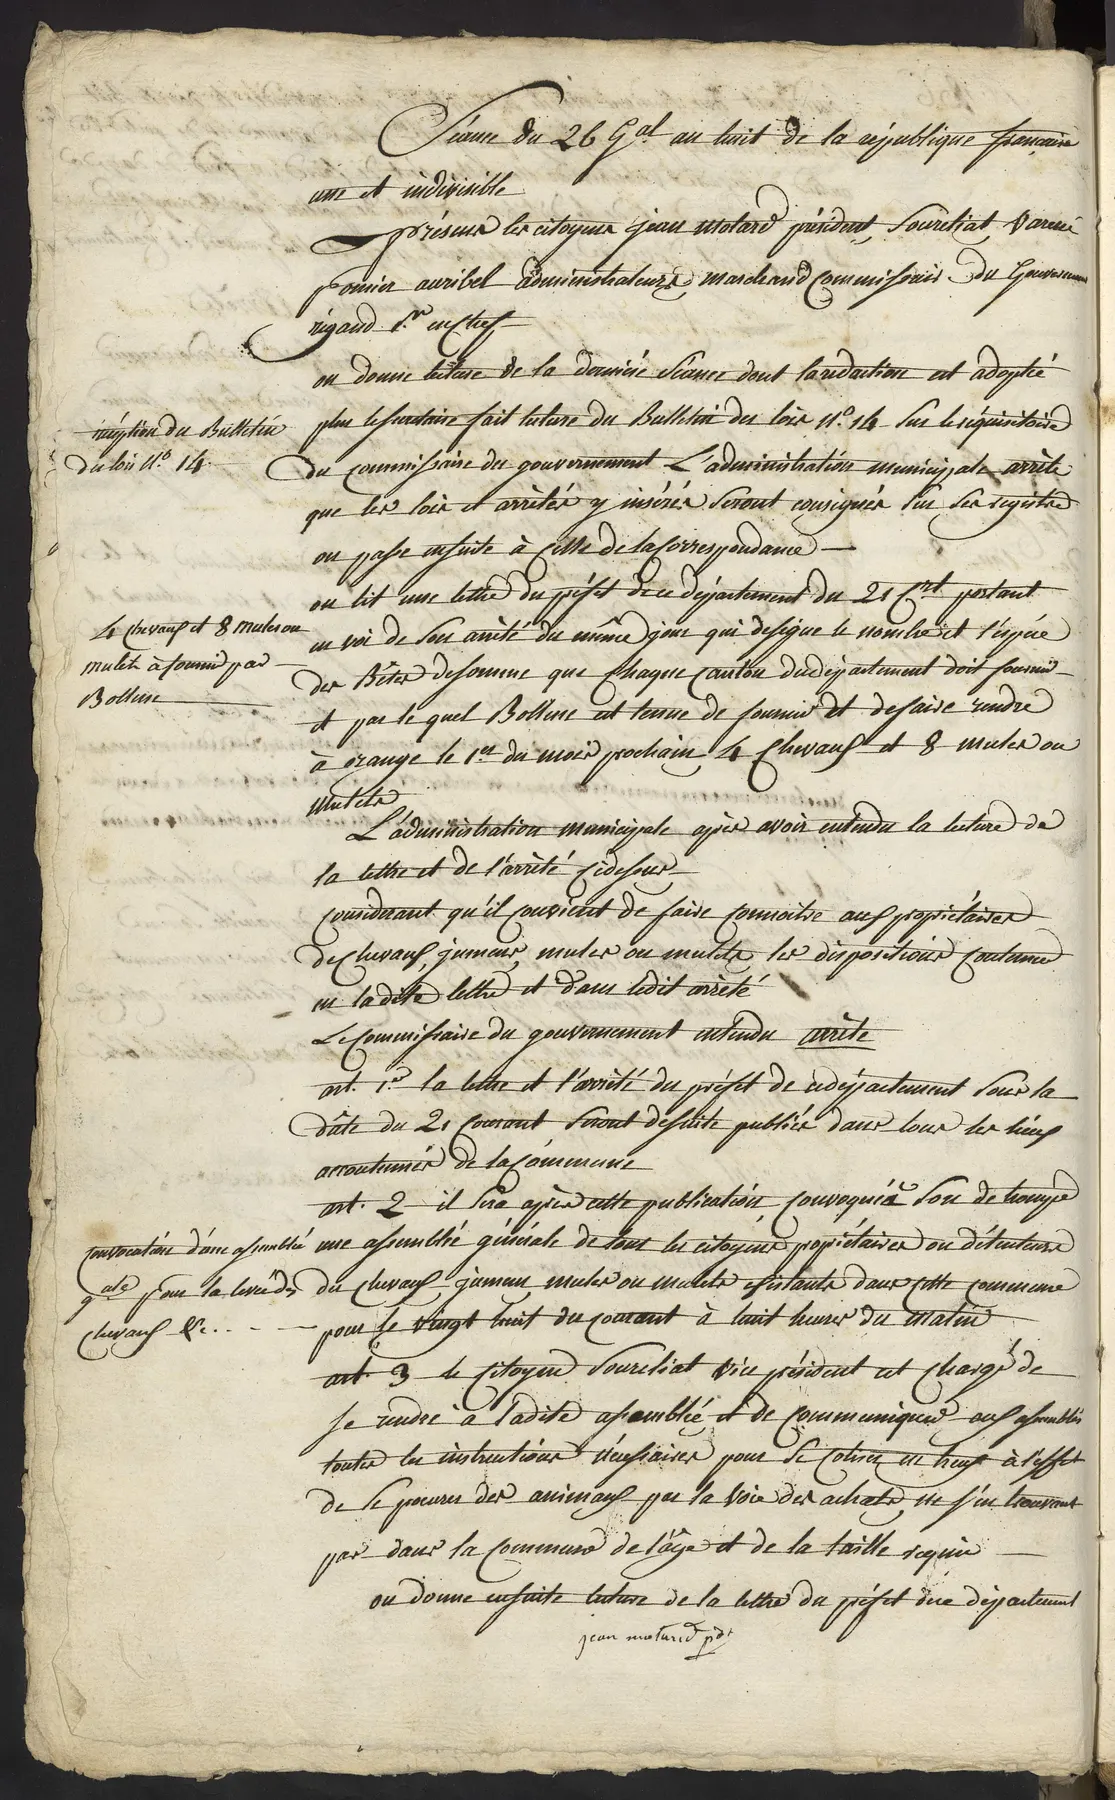 Séance du 26 G.al an huit de la république française
une et indivisible
présens les citoyens jean motard président, Soureliat, Varene
auribel administrateurs, marchand Commissaire du Gouvernem
rigaud S.re en chef
on donne lecture de la dernière Séance dont la redaction est adoptée
plus le secretaire fait lecture du Bulletin des lois N.o 14 Sur le réquisitoire
réception du Bulletin
des lois N.o 14
du commissaire du gouvernement L'administration municipale arrête
que les lois et arrêtés y insérés Seront consignés Sur Ses registre
on passe ensuite à Celle de la Correspondance
on lit une lettre du préfet de ce département du 21 C.rt portant
4 chevaux et 8 mules ou
mulets à fournir par
Bollene
en voi de Son arrêté du même jour qui desigue le nombre et l'espéce
des Bêtes de Somme que Chaque Canton du département doit fournir
et par le quel Bollene est tenue de fournir et de faire rendre
à orange le 1.er du mois prochain 4 Chevaux et 8 mules ou
mulets
L'administration municipale après avoir entendu la lecture de
la lettre et de l'arrêté Cidessus
Considerant qu'il Convient de faire Connoitre aux propriétaires
de Chevaux, jumens, mules ou mulets les dispositions Contenues
en ladite lettre et dans ledit arrêté
Le Commissaire du gouvernement entendu arrête
art. 1.er la lettre et l'arrêté du préfet de ce département Sous la
dâte du 21 Courant Seront desuite publiés dans tous les lieux
accoutumés de la Commune
art. 2 il Sera après cette publication Convoqué à Son de trompe
convocation d'une assemblée
g.ale pour la levée des
chevaux &c...
une assemblée générale de tous les citoyens propriétaires ou détenteurs
du chevaux jumens mules ou mulets existants dans cette commune
pour le vingt huit du courant à huit heures du matin
art. 3 le Citoyen Soureliat vice président est chargé de
Se rendre à ladite assemblée et de Communiquer aux assemblés
toutes les instructions nécessaires pour Se Cotiser entr'eux à l'effet
de Se procurer des animaux par la voie des achats ne s'en trouvant
pas dans la Commune de l'âge et de la taille requise
on donne ensuite lecture de la lettre du préfet de ce département
jean motard pdt